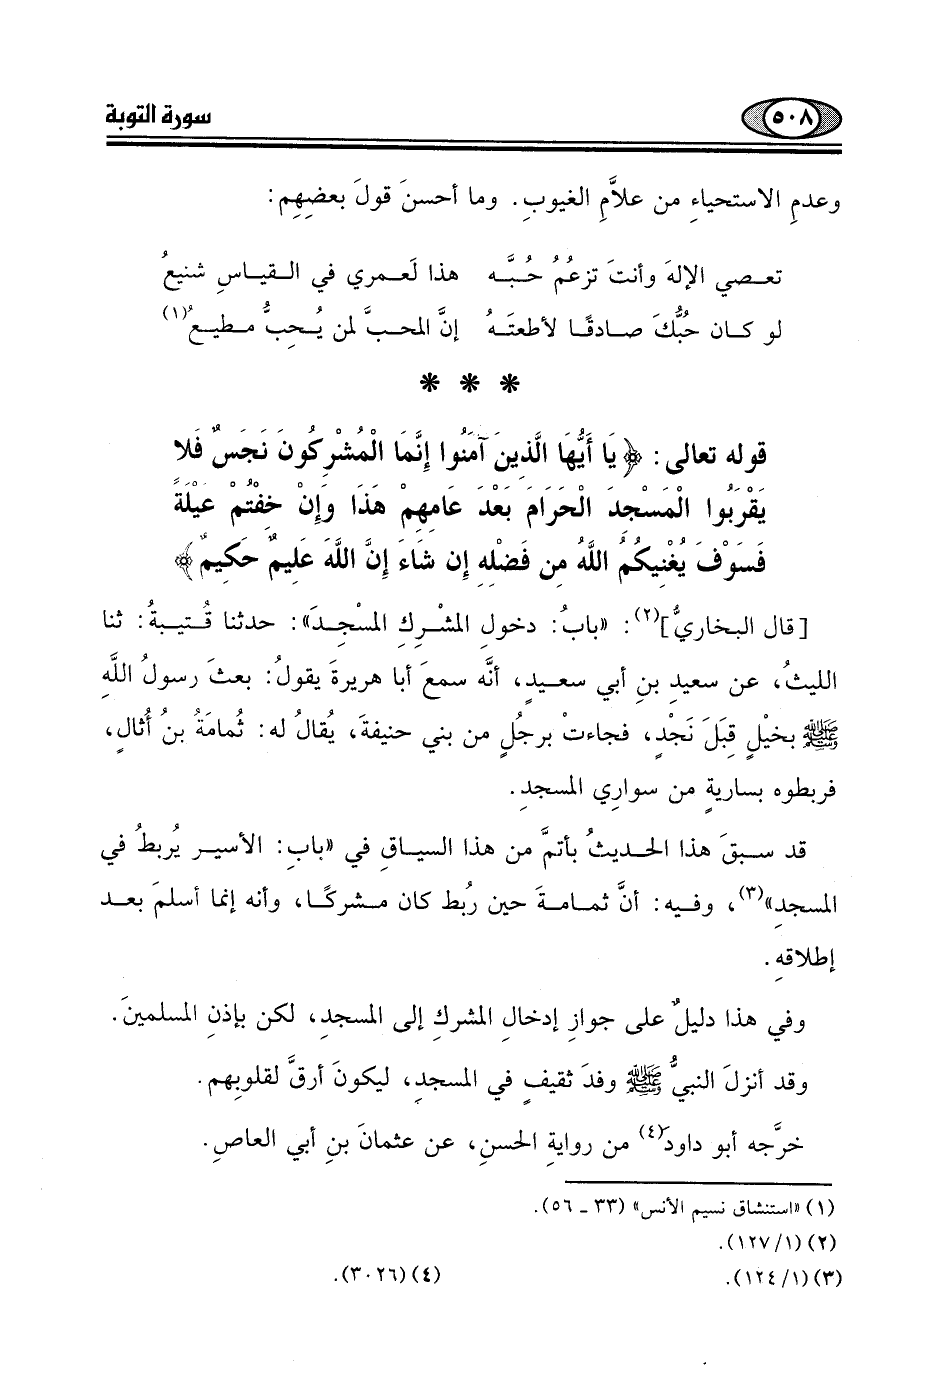 ٥٠٨ سورة التوبة
وعدمِ الاستحياءِ من علاَّمِ الغيوبِ. وما أحسنَ قولَ بعضِهِم:
تعـصي الإلهَ وأنتَ تزعُمُ حُـبَّـه هذا لَعـمري في القـياسِ شنيعُ
لو كـان حبُّكَ صـادقًـا لأطعتَـهُ إنَّ المحبَّ لمن يُـحبُّ مـطيـعُ(١)
* * *
قوله تعالى: ﴿يَا أَيُّهَا الَّذِينَ آمَنُوا إِنَّمَا الْمُشْرِكُونَ نَجَسٌ فَلا
يَقْرَبُوا الْمَسْجِدَ الْحَرَامَ بَعْدَ عَامِهِمْ هَذَا وَإِنْ خِفْتُمْ عَيْلَةً
فَسَوْفَ يُغْنِيكُمُ اللَّهُ مِن فَضْلِهِ إِن شَاءَ إِنَّ اللَّهَ عَلِيمٌ حَكِيمٌ﴾
[قال البخاريُّ](٢): «بابُ: دخولِ المشْركِ المسْجِدَ»: حدثنا قُتيبةُ: ثنا
الليثُ، عن سعيدِ بنِ أبي سعيدٍ، أنَّه سمعَ أبا هريرةَ يقولُ: بعثَ رسولُ اللَّهِ
ﷺ بخيْلٍ قِبَلَ نَجْدٍ، فجاءتْ برجُلٍ من بني حنيفةَ، يُقالُ له: ثُمامَةُ بنُ أُثالٍ،
فربطوه بساريةٍ من سواري المسجدِ.
قد سبقَ هذا الحديثُ بأتمَّ من هذا السياقِ في «باب: الأسير يُربطُ في
المسجدِ»(٣)، وفيه: أنَّ ثمامـةَ حين رُبط كان مشركًا، وأنه إنما أسلمَ بعد
إطلاقهِ.
وفي هذا دليلٌ على جوازِ إدخالِ المشركِ إلى المسجدِ، لكن بإذنِ المسلمينَ.
وقد أنزلَ النبيُّ ﷺ وفدَ ثقيفٍ في المسجدِ، ليكونَ أرقَّ لقلوبِهم.
خرَّجه أبو داودَ(٤) من روايةِ الحسنِ، عن عثمانَ بنِ أبي العاصِ.
(١) «استنشاق نسيم الأنس» (٣٣ ـ ٥٦).
(٢) (١/ ١٢٧).
(٣) (١/ ١٢٤). (٤) (٣٠٢٦).